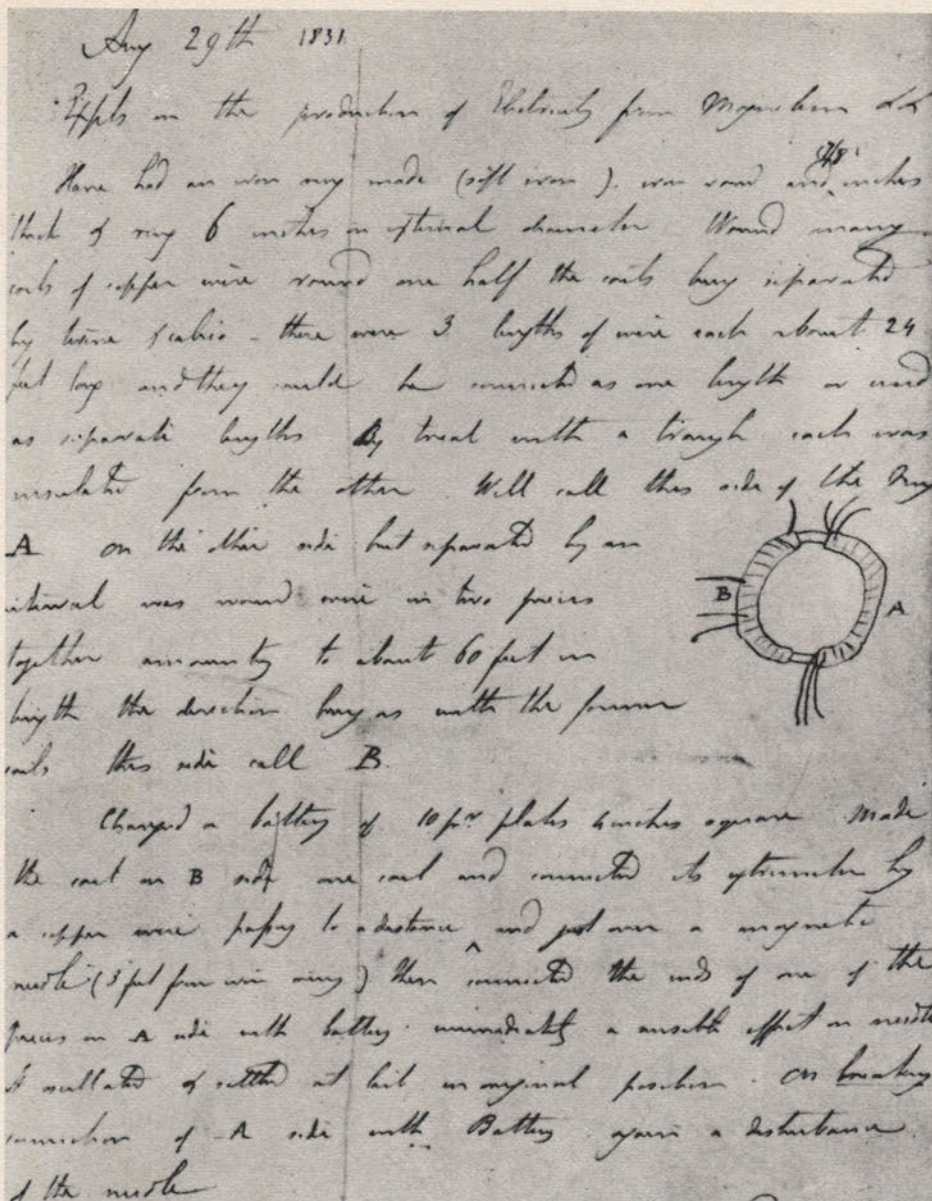 Aug 29th 1831
Expts on the production of Electricity from Magnetism &c &c
Have had an iron ring made (soft iron). iron round and 7/8 inches
thick & ring 6 inches in external diameter Wound many
coils of copper wire round one half the coils being separated
by twine & calico - there were 3 lengths of wire each about 24
feet long and they could be connected as one length or used
as separate lengths By trial with a trough each was
insulated from the other. Will call this side of the Ring
A on the other side but separated by an
interval was wound wire in two pieces
together amounting to about 60 feet in
length the direction being as with the former
coils this side call B.
B
A
Charged a battery of 10 pr plates 4 inches square Made
the coil on B side one coil and connected its extremities by
a copper wire passing to a distance and just over a magnetic
needle (3 feet from iron ring) then connected the ends of one of the
pieces on A side with battery. immediately a sensible effect on needle
It oscillated & settled at last in original position. On breaking
connection of A side with Battery again a disturbance
of the needle